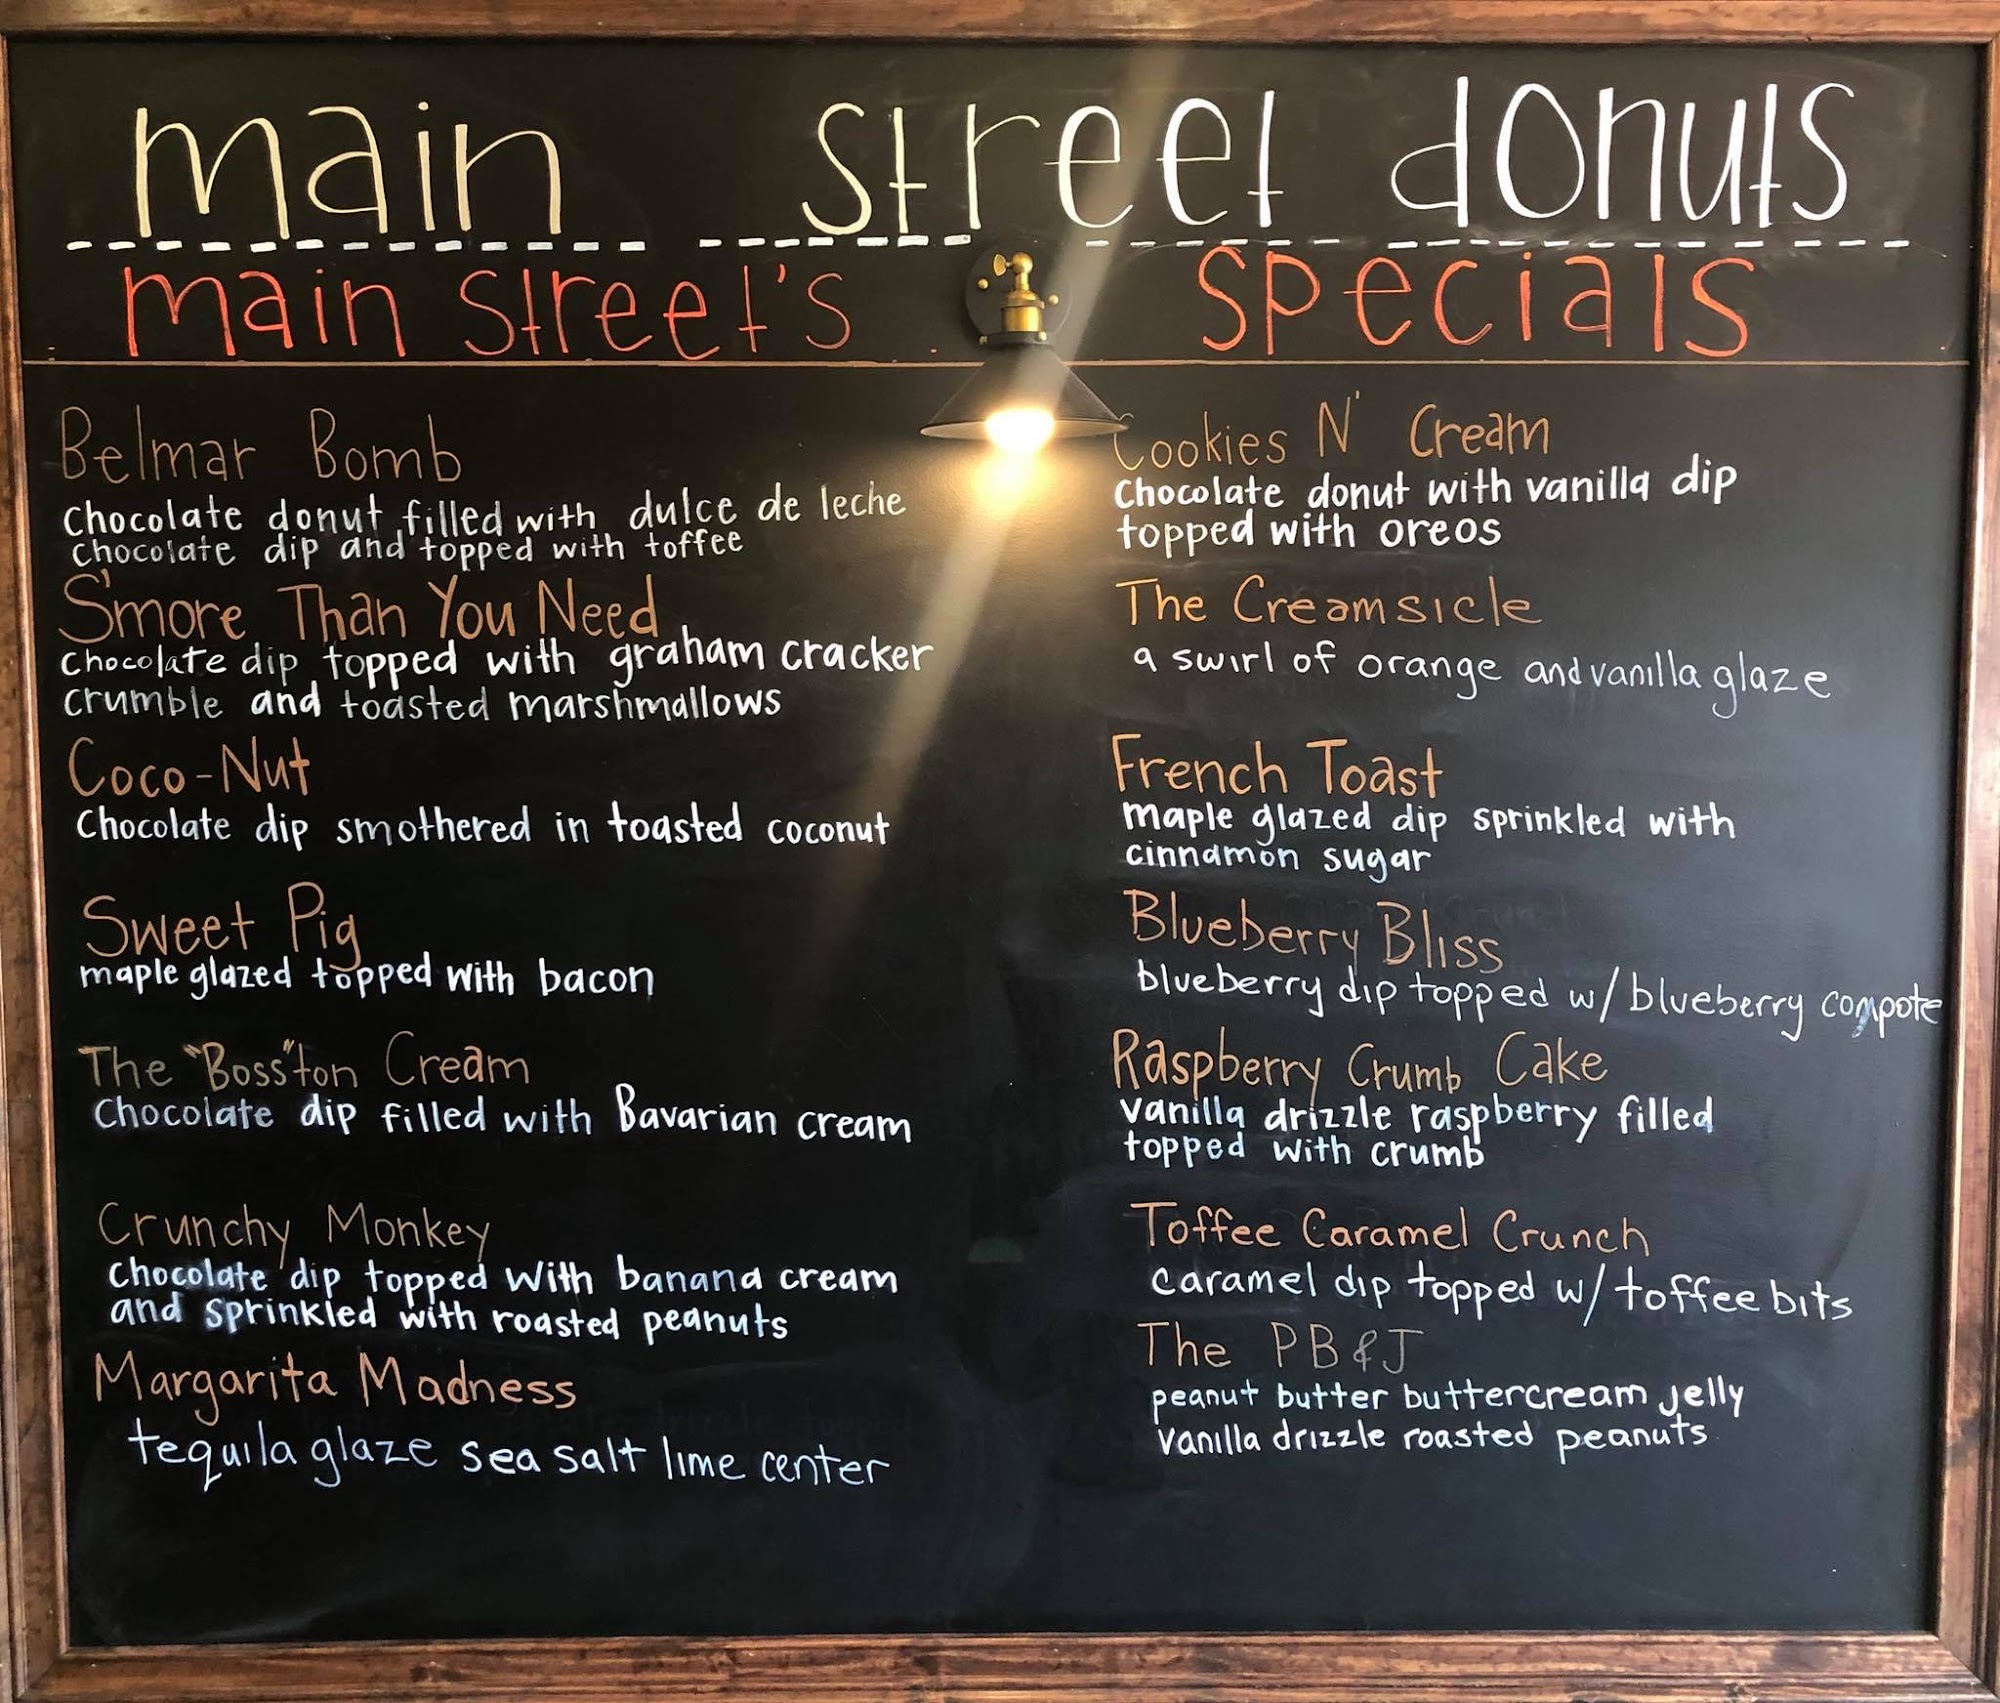 main street donuts
main street's specials
Belmar Bomb
Chocolate donut filled with dulce de leche
chocolate dip and topped with toffee
S'more Than You Need
chocolate dip topped with graham cracker
crumble and toasted marshmallows
Coco-Nut
Chocolate dip smothered in toasted coconut
Sweet Pig
maple glazed topped with bacon
The "Boss"ton Cream
Chocolate dip filled with Bavarian cream
Crunchy Monkey
Chocolate dip topped with banana cream
and sprinkled with roasted peanuts
Margarita Madness
tequila glaze sea salt lime center
Cookies N' Cream
Chocolate donut with vanilla dip
topped with oreos
The Creamsicle
a swirl of orange and vanilla glaze
French Toast
maple glazed dip sprinkled with
cinnamon sugar
Blueberry Bliss
blueberry dip topped w/ blueberry compote
Raspberry Crumb Cake
vanilla drizzle raspberry filled
topped with crumb
Toffee Caramel Crunch
caramel dip topped w/ toffee bits
The PB&J
peanut butter buttercream jelly
vanilla drizzle roasted peanuts